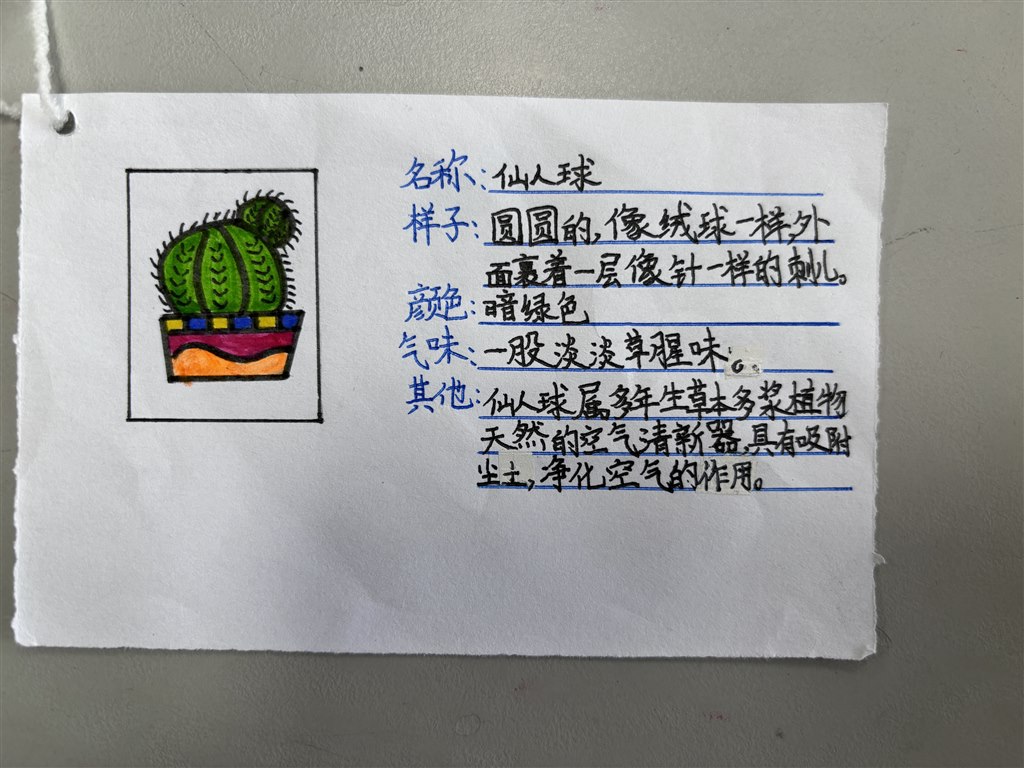 名称：仙人球
样子：圆圆的，像绒球一样，外
面裹着一层像针一样的刺儿。
颜色：暗绿色
气味：一股淡淡草腥味。
其他：仙人球属多年生草本多浆植物
天然的空气清新器，具有吸附
尘土，净化空气的作用。